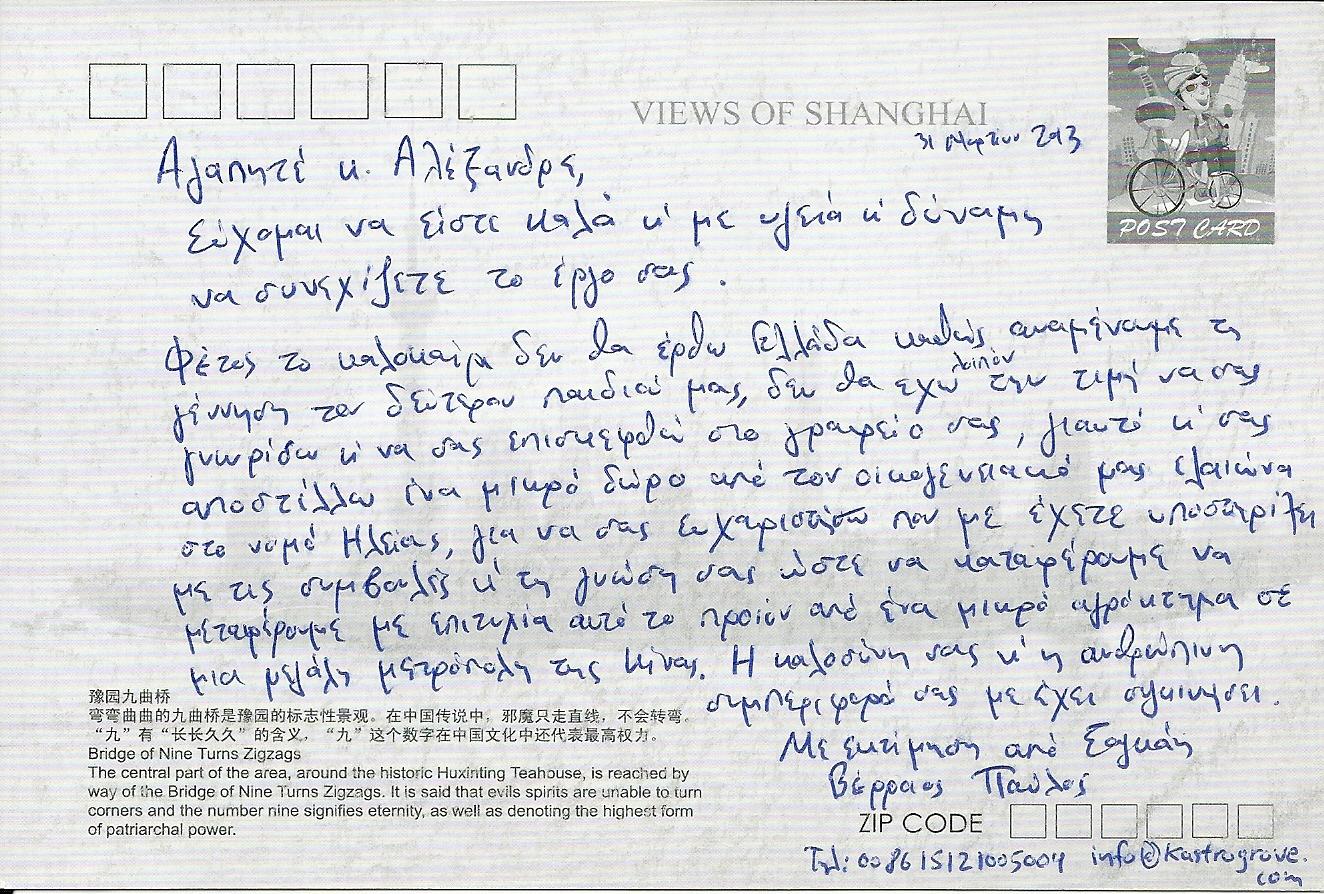 VIEWS OF SHANGHAI
31 Μαρτίου 2013
POST CARD
Αγαπητέ κ. Αλέξανδρε,
εύχομαι να είστε καλά κ' με υγειά κ' δύναμη
να συνεχίζετε το έργο σας.
Φέτος το καλοκαίρι δεν θα έρθω Ελλάδα καθώς αναμένουμε τη
γέννηση του δεύτερου παιδιού μας, δεν θα έχω λοιπόν την τιμή να σας
γνωρίσω κ' να σας επισκεφθώ στο γραφείο σας, γιαυτό κ' σας
αποστέλλω ένα μικρό δώρο από τον οικογενειακό μας ελαιώνα
στο νομό Ηλείας, για να σας ευχαριστήσω που με έχετε υποστηρίξει
με τις συμβουλές κ' τη γνώση σας ώστε να καταφέρουμε να
μεταφέρουμε με επιτυχία αυτό το προϊόν από ένα μικρό αγρόκτημα σε
μια μεγάλη μητρόπολη της Κίνας. Η καλοσύνη σας κ' η ανθρώπινη
συμπεριφορά σας με έχει συγκινήσει.
Με εκτίμηση από Σαγκάη
Βέρραιος Παύλος
豫园九曲桥
弯弯曲曲的九曲桥是豫园的标志性景观。在中国传说中，邪魔只走直线，不会转弯。
“九”有“长长久久”的含义，“九”这个数字在中国文化中还代表最高权力。
Bridge of Nine Turns Zigzags
The central part of the area, around the historic Huxinting Teahouse, is reached by
way of the Bridge of Nine Turns Zigzags. It is said that evils spirits are unable to turn
corners and the number nine signifies eternity, as well as denoting the highest form
of patriarchal power.
ZIP CODE
Τηλ: 008615121005004 info@kastrogrove.
com